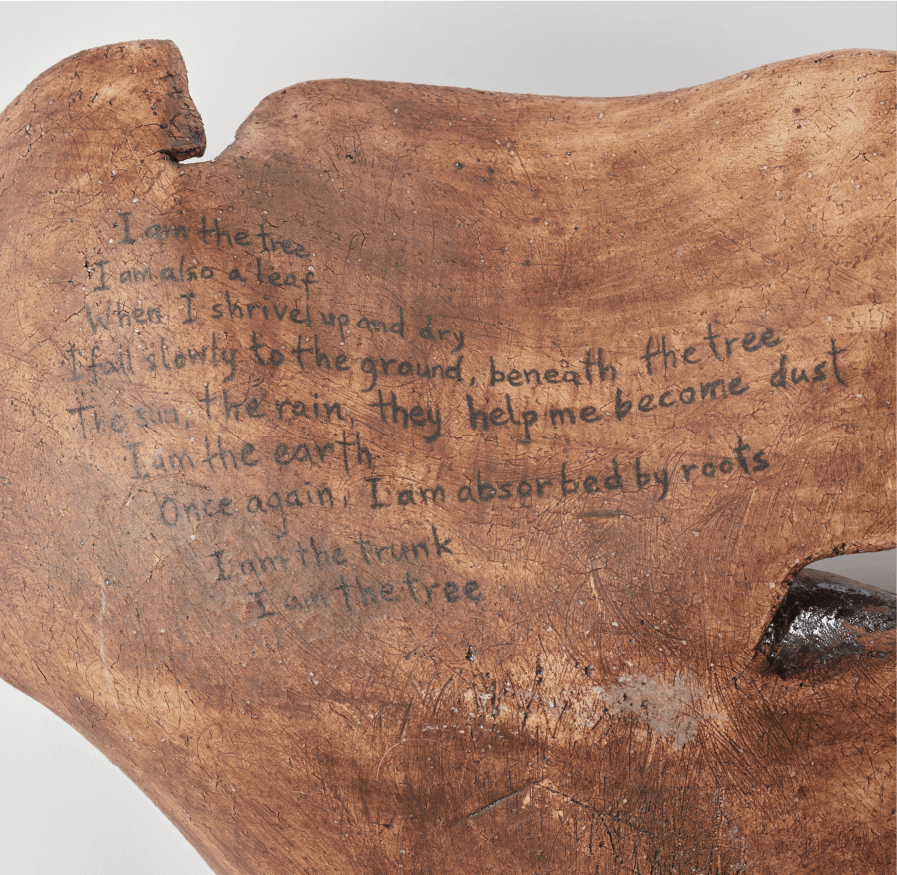 I am the tree
I am also a leaf
When I shrivel up and dry
I fall slowly to the ground, beneath the tree
The sun, the rain, they help me become dust
I am the earth
Once again, I am absorbed by roots
I am the trunk
I am the tree